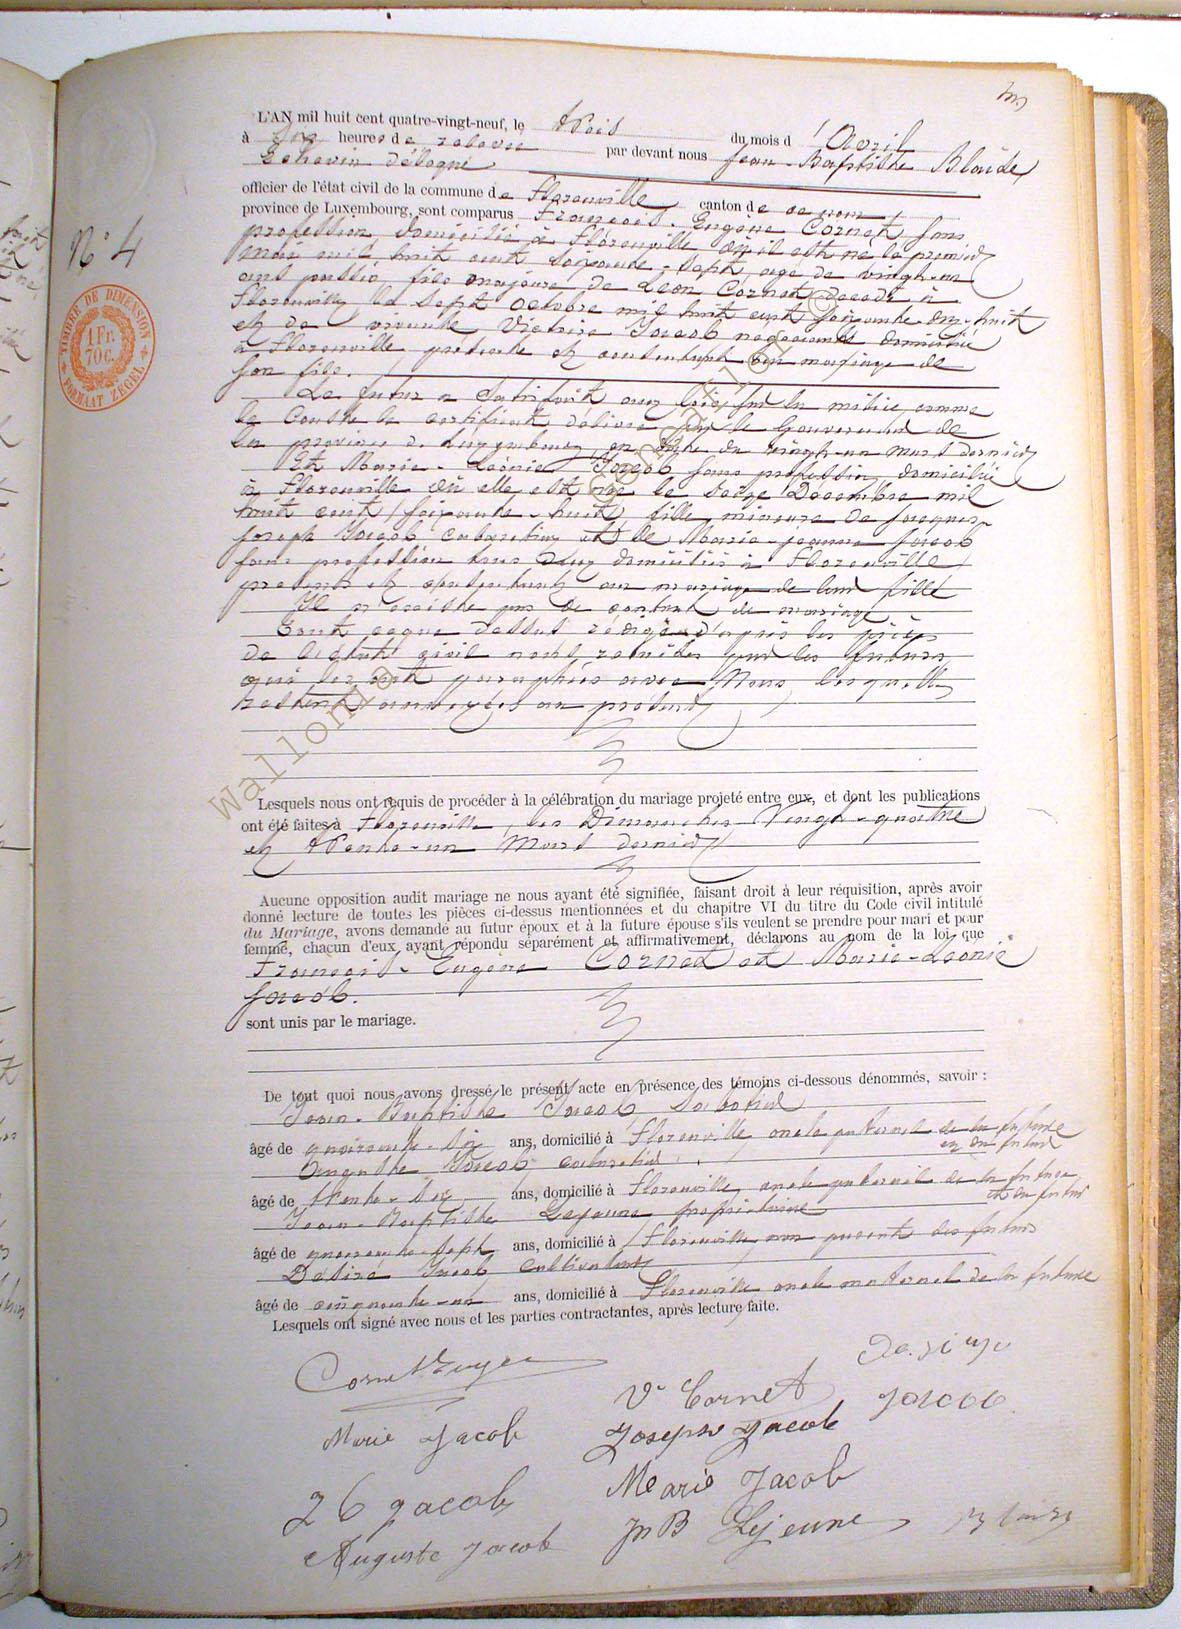 N° 4
TIMBRE DE DIMENSION
1 Fr. 70 C.
FORMAAT ZEGEL
L'AN mil huit cent quatre-vingt-neuf, le trois du mois d'Avril
à heures de relevée par devant nous Jean-Baptiste Blaise,
Echevin délégué
officier de l'état civil de la commune de Florenville canton de ce nom,
province de Luxembourg, sont comparus François-Eugène Cornet sans
profession domicilié à Florenville où il est né le premier
Mai mil huit cent soixante-sept, agé de vingt-un
ans passés, fils majeur de Léon Cornet décédé à
Florenville le sept Octobre mil huit cent soixante-dix-huit
et de vivante Victoire Jacob négociante domiciliée
à Florenville présente et consentant au mariage de
son fils.
Le futur a satisfait aux lois sur la milice comme
le Conste le certificat délivré par le Gouverneur de
la province de Luxembourg en date du vingt-un mars dernier
Et Marie-Léonie Jacob sans profession, domiciliée
à Florenville où elle est née le seize Décembre mil
huit cent soixante-huit, fille mineure de Jacques-
Joseph Jacob cabaretier et de Marie-Jeanne Jacob
sans profession tous deux domiciliés à Florenville,
présents et consentant au mariage de leur fille
Il n'existe pas de contrat de mariage
Tout ce que dessus rédigé d'après les pièces
de l'état civil nous remises par les futurs
qui les ont paraphées avec Nous, lesquelles
restent annexées au présent
Lesquels nous ont requis de procéder à la célébration du mariage projeté entre eux, et dont les publications
ont été faites à Florenville, les Dimanches Vingt-quatre
et trente-un Mars dernier
Aucune opposition audit mariage ne nous ayant été signifiée, faisant droit à leur réquisition, après avoir
donné lecture de toutes les pièces ci-dessus mentionnées et du chapitre VI du titre du Code civil intitulé
du Mariage, avons demandé au futur époux et à la future épouse s'ils veulent se prendre pour mari et pour
femme, chacun d'eux ayant répondu séparément et affirmativement, déclarons au nom de la loi que
François-Eugène Cornet et Marie-Léonie
Jacob.
sont unis par le mariage.
De tout quoi nous avons dressé le présent acte en présence des témoins ci-dessous dénommés, savoir :
Jean-Baptiste Jacob Sabotier
âgé de quarante-six ans, domicilié à Florenville, oncle paternel de la future
et du futur
Auguste Jacob cabaretier
âgé de trente-six ans, domicilié à Florenville, oncle paternel de la future
et du futur
Jean-Baptiste Lejeune propriétaire
âgé de quarante-sept ans, domicilié à Florenville, non parent des futurs
Désiré Jacob Cultivateur
âgé de cinquante-un ans, domicilié à Florenville oncle maternel de la future
Lesquels ont signé avec nous et les parties contractantes, après lecture faite.
Cornet Eugène
Vᵉ Cornet
Jacob
Marie Jacob
Joseph Jacob
Marie Jacob
Jacob
Jn B Lejeune
Auguste Jacob
Wallonia